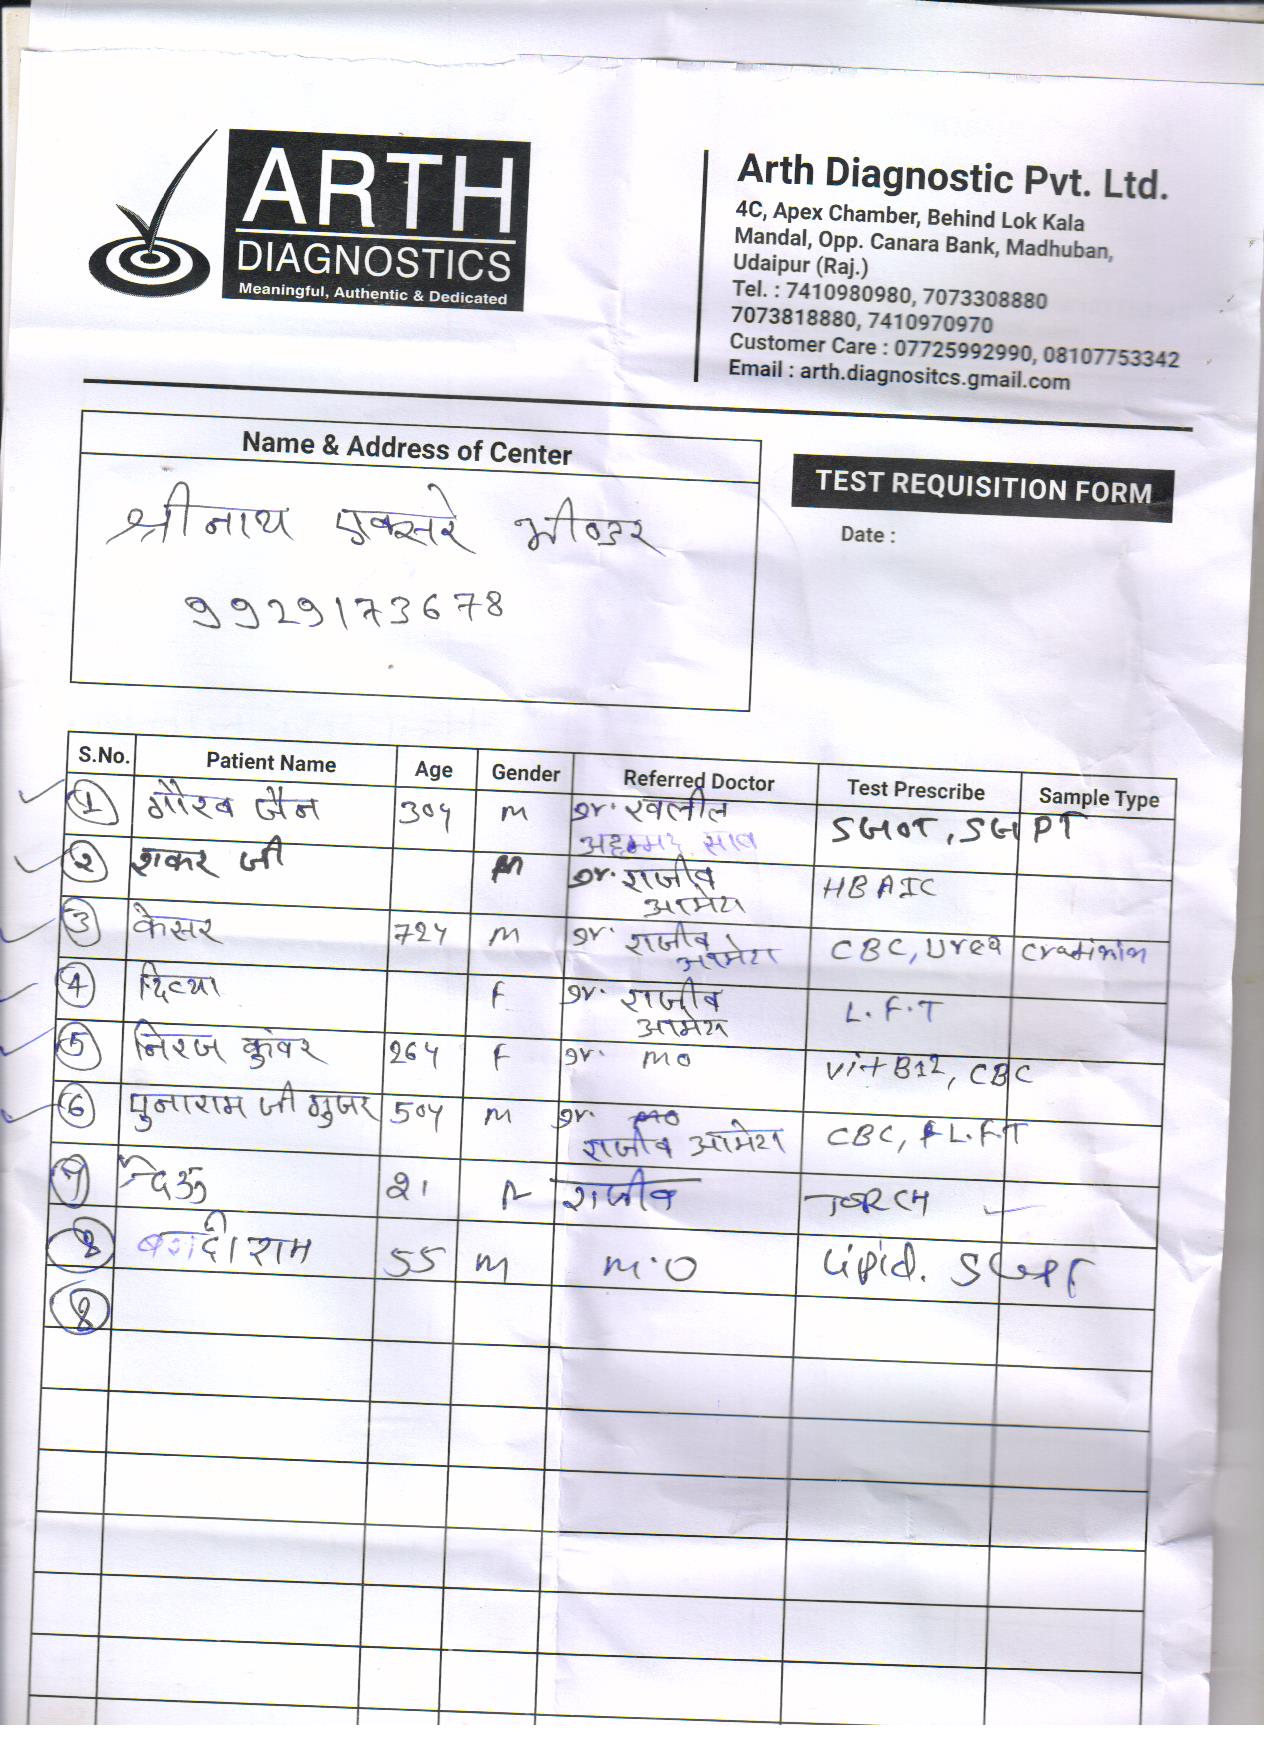 ARTH
DIAGNOSTICS
Meaningful, Authentic & Dedicated
Arth Diagnostic Pvt. Ltd.
4C, Apex Chamber, Behind Lok Kala
Mandal, Opp. Canara Bank, Madhuban,
Udaipur (Raj.)
Tel. : 7410980980, 7073308880
7073818880, 7410970970
Customer Care : 07725992990, 08107753342
Email : arth.diagnositcs.gmail.com
Name & Address of Center
श्रीनाथ एक्सरे भीण्डर
9929173678
TEST REQUISITION FORM
Date :
S.No. Patient Name Age Gender Referred Doctor Test Prescribe Sample Type
1 गौरव जैन 30y M Dr. खलील SGOT, SGPT
अहमद साब
2 शंकर जी M Dr. राजीव HBA1C
आमेटा
3 केसर 72y M Dr. राजीव CBC, Urea Cradinin
आमेटा
4 दिव्या F Dr. राजीव L.F.T
आमेटा
5 निरज कुंवर 26y F Dr. MO Vit B12, CBC
6 पुनाराम जी गुजर 50y M Dr. CBC, L.F.T
राजीव आमेटा
7 21 राजीव TORCH
8 55 M M.O Lipid. SGPT
8